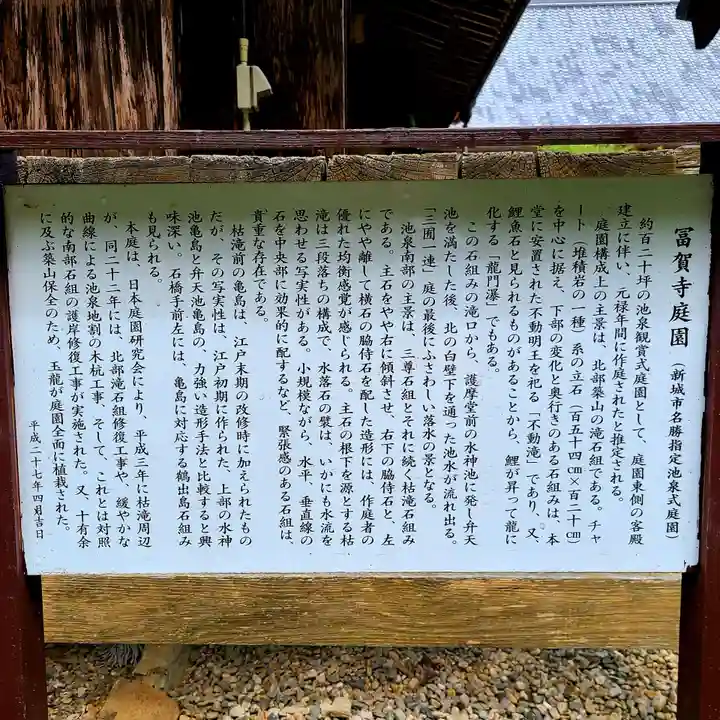 冨賀寺庭園 (新城市名勝指定池泉式庭園)
約百二十坪の池泉観賞式庭園として、庭園東側の客殿
建立に伴い、元禄年間に作庭されたと推定される。
庭園構成上の主景は、北部築山の滝石組である。チャ
ート(堆積岩の一種)系の立石(百五十四㎝×百二十㎝)
を中心に据え、下部の変化と奥行きのある石組みは、本
堂に安置された不動明王を祀る「不動滝」であり、又、
鯉魚石と見られるものがあることから、鯉が昇って龍に
化する「龍門瀑」でもある。
この石組みの滝口から、護摩堂前の水神池に発し弁天
池を満たした後、北の白壁下を通った池水が流れ出る。
「三囲一連」庭の最後にふさわしい落水の景となる。
池泉南部の主景は、三尊石組とそれに続く枯滝石組み
である。主石をやや右に傾斜させ、右下の脇侍石と、左
にやや離して横石の脇侍石を配した造形には、作庭者の
優れた均衡感覚が感じられる。主石の根下を源とする枯
滝は三段落ちの構成で、水落石の襞は、いかにも水流を
思わせる写実性がある。小規模ながら、水平、垂直線の
石を中央部に効果的に配するなど、緊張感のある石組は、
貴重な存在である。
枯滝前の亀島は、江戸末期の改修時に加えられたもの
だが、その写実性は、江戸初期に作られた、上部の水神
池亀島と弁天池亀島の、力強い造形手法と比較すると興
味深い。石橋手前左には、亀島に対応する鶴出島石組み
も見られる。
本庭は、日本庭園研究会により、平成三年に枯滝周辺
が、同二十二年には、北部滝石組修復工事や、緩やかな
曲線による池泉地割の木杭工事、そして、これとは対照
的な南部石組の護岸修復工事が実施された。又、十有余
に及ぶ築山保全のため、玉龍が庭園全面に植栽された。
平成二十七年四月吉日